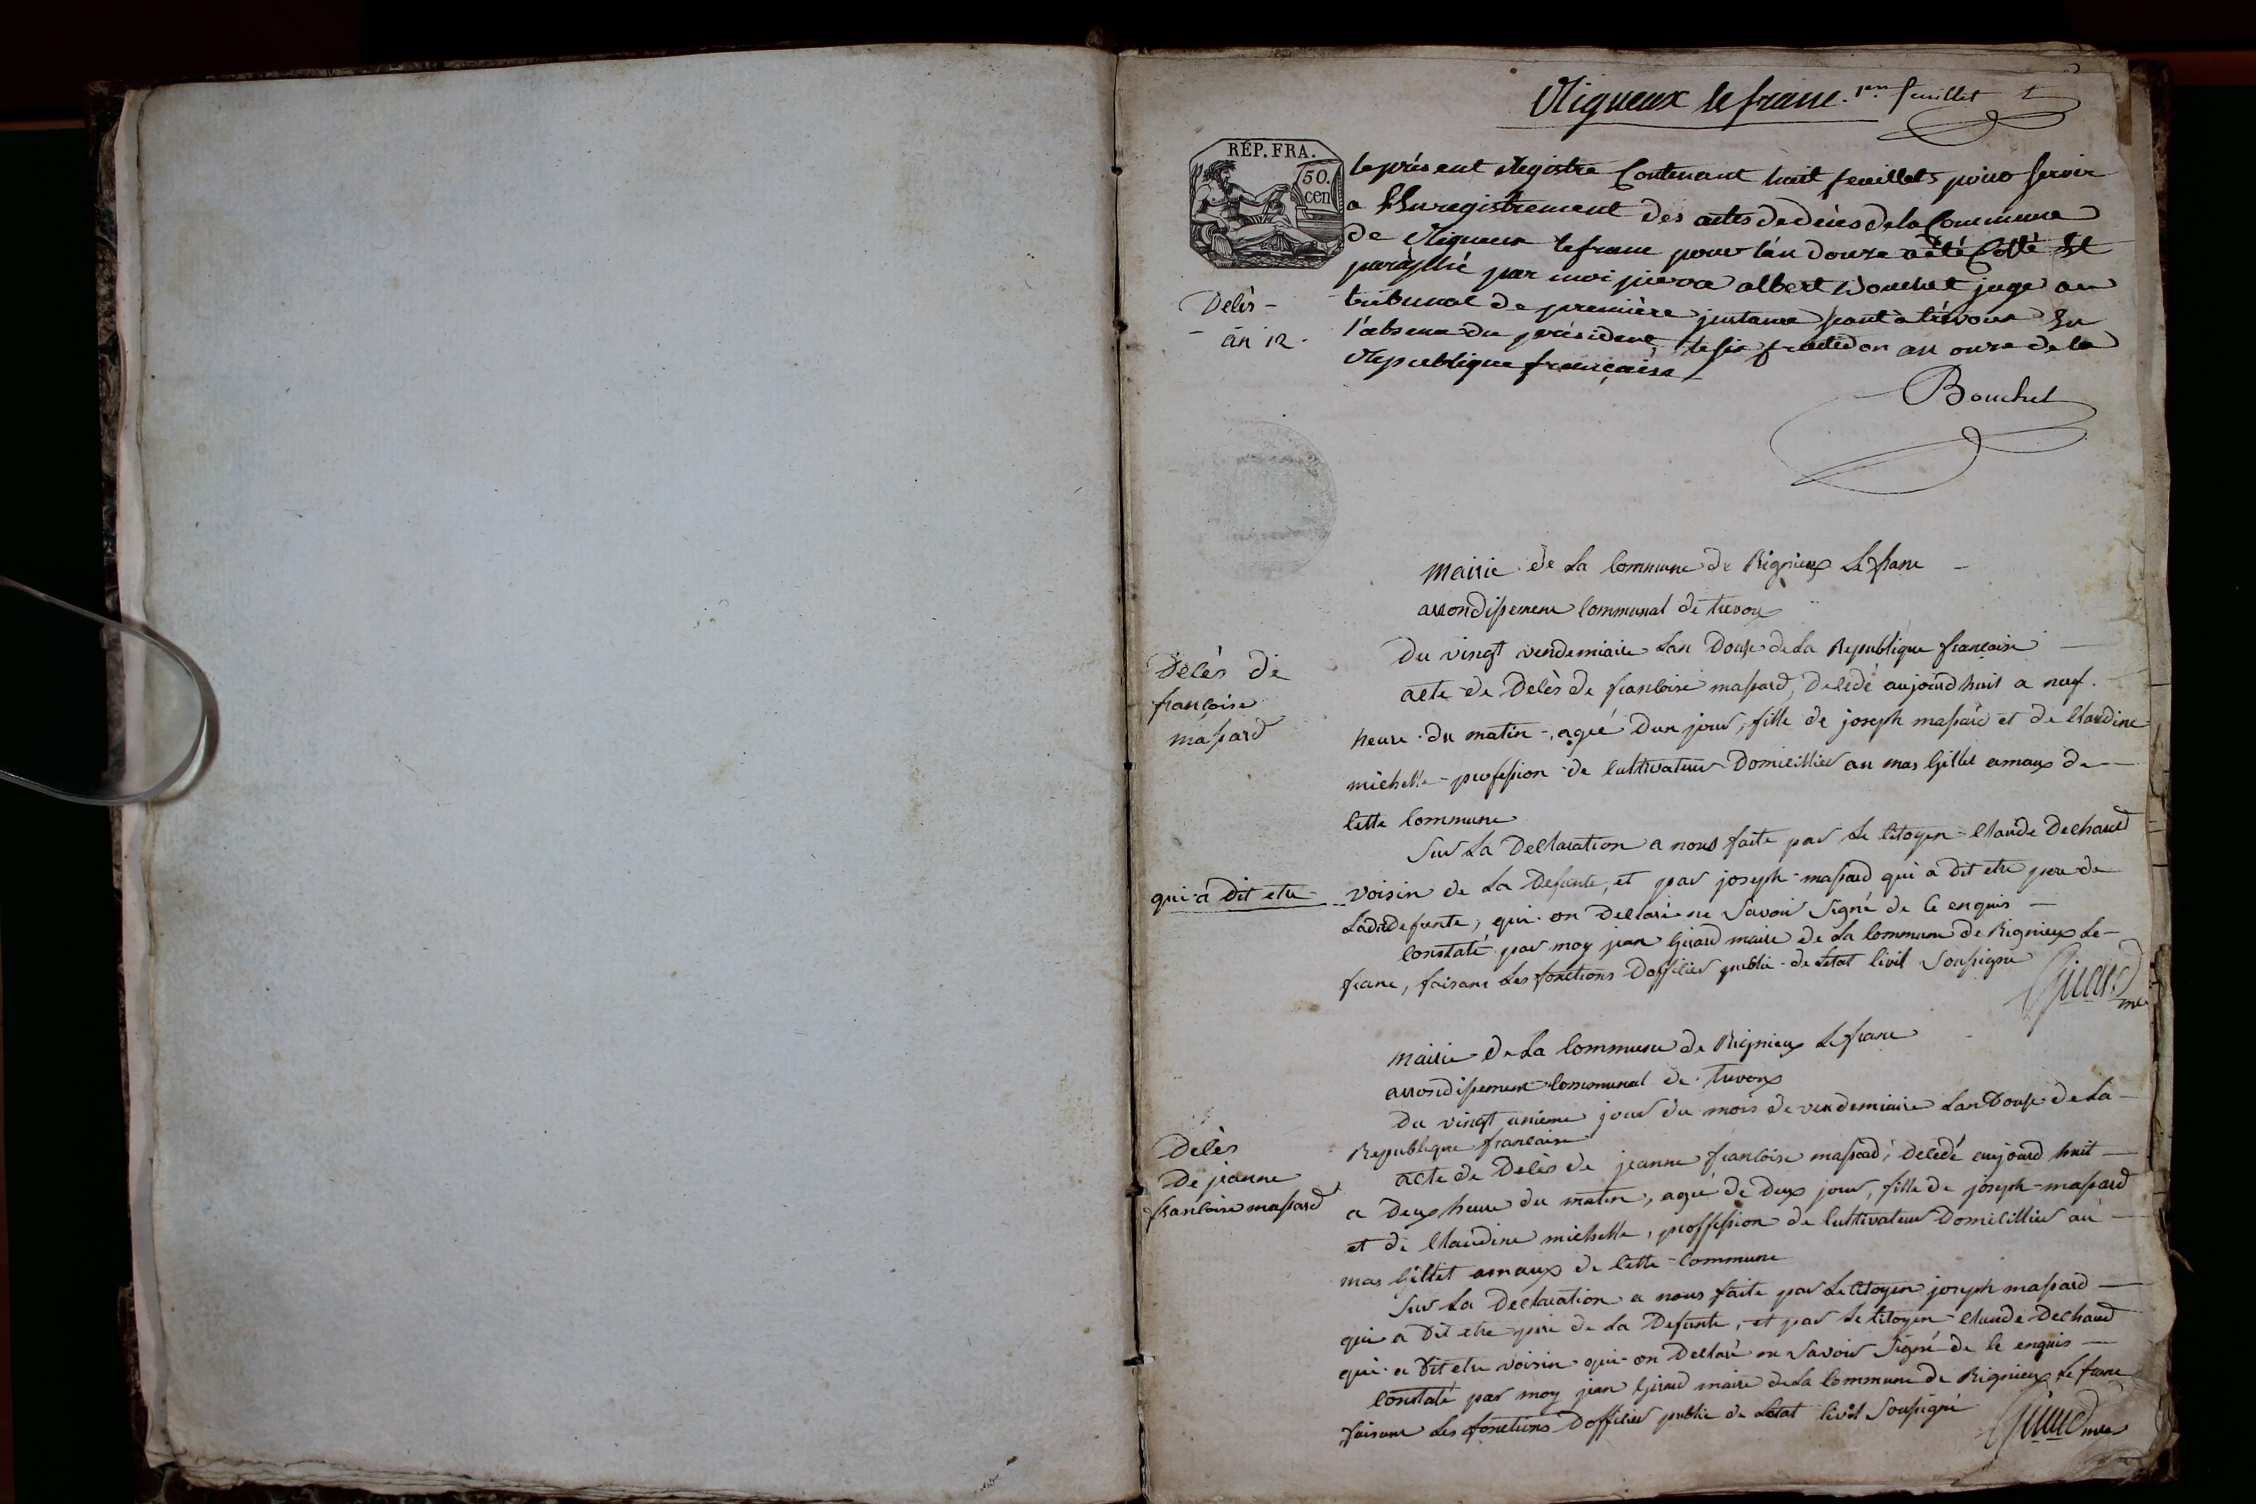 Rigneux le franc. 1er feuillet
RÉP. FRA.
50.
cen
le présent Registre Contenant huit feuillets pour servir
a l'Enregistrement des actes de décès de la Commune
de Rigneux le franc pour l'an douze a été Cotté Et
paraphé par moi pierre albert Bouchet juge au
tribunal de première instance séant à trévoux En
l'absence du président, le six fructidor an onze de la
République française
Decès
an 12.
Bouchet
Mairie de La Commune de Rignieux Le franc
arrondissement Communal de trevoux
Du vingt vendemiaire Lan Douse de La Republique francaise
Decès de
francoise
massard
acte de Decès de francoise massard, Decedé aujourdhuit a neuf
heure du matin, agée D'un jour, fille de joseph massard et de Claudine
michelle profession de Cultivateur Domicillier au mas Gillet amaux de
Cette Commune
Sur La Declaration a nous faite par Le Citoyen Claude Dechaud
qui a Dit etre
voisin de La Defunte, et par joseph massard qui a Dit etre pere de
Ladite defunte, qui on Declaré ne Savoir Signé de Ce enquis
Constaté par moy jean Girard maire de La Commune de Rignieux Le
franc, faisant Les fonctions D'officier public de Letat Civil Soussigné
Girard
me
Mairie de La Commune de Rignieux Le franc
arrondissement Communal de Trevoux
Du vingt unieme jour du mois de vendemiaire Lan Douse de La
Republique francaise
Decès
De jeanne
francoise massard
acte de Decès de jeanne francoise massard, Decedé aujourd huit
a Deux heure du matin, agée de Deux jour, fille de joseph massard
et de Claudine michelle, proffession de Cultivateur Domicillier au
mas Gillet amaux de Cette Commune
Sur La Declaration a nous faite par Le Citoyen joseph massard
qui a Dit etre pere de La Defunte, et par Le Citoyen Claude Dechaud
qui a Dit etre voisin qui on Declaré ne Savoir Signé de Ce enquis
Constaté par moy jean Girard maire de La Commune de Rignieux Le franc
faisant Les fonctions D'officier public de Letat Civil Soussigné
Girard me